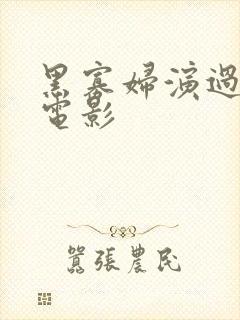 黑寡婦演過
電影
囂張農民